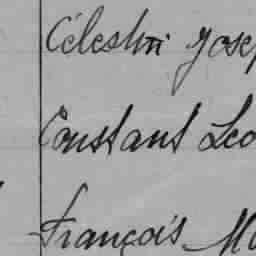 Célestin Josep
Constant Leo
François Ma